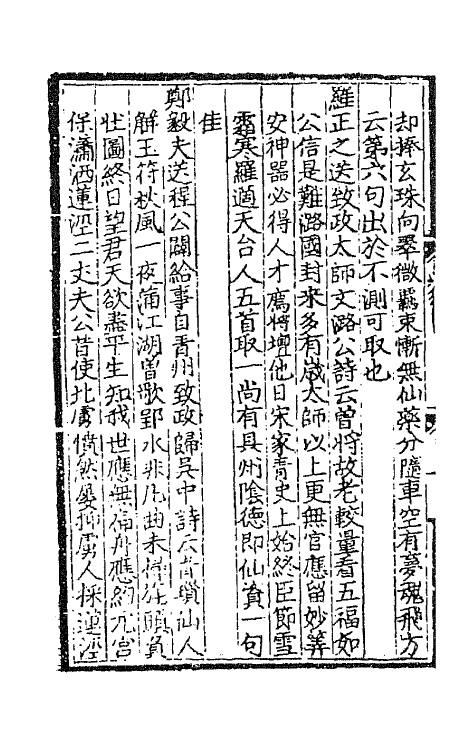 却捧玄珠向翠微羈束慚無仙藥分隨車空有夢魂飛方
云第六句出於不測可取也
羅正之送致政太師文潞公詩云曽將故老較量看五福如
公信是難潞國封来多有歲太師以上更無官應留妙筭
安神器必得人才薦將壇他日宋家青史上始終臣節雪
霜寒羅適天台人五首取一尚有具州陰德即仙負一句
佳
鄭毅夫送程公闢給事自青州致政歸吳中詩云青瑣仙人
解玉符秋風一夜滿江湖曽歌郢水非凡曲未
圖終日望君天欲盡平生知我世應無 舟應約
保瀟洒蓮涇二丈夫公昔使北虜僨然屢抑虜人採蓮涇